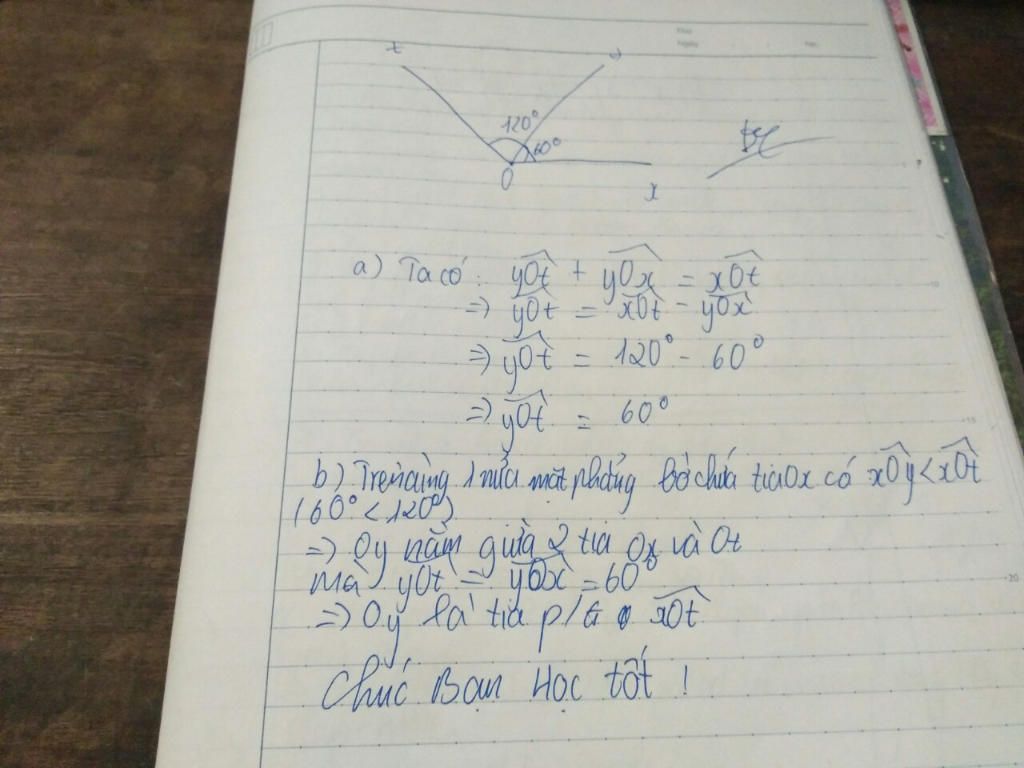 t y
120°
60°
O
x
a) Ta có: yOt + yOx = xOt
=> yOt = xOt - yOx
=> yOt = 120° - 60°
=> yOt = 60°
b) Trên cùng 1 nửa mặt phẳng bờ chứa tia Ox có xOy < xOt
(60° < 120°)
=> Oy nằm giữa 2 tia Ox và Ot
mà yOt = yOx = 60°
=> Oy là tia p/g xOt
Chúc Bạn Học tốt !